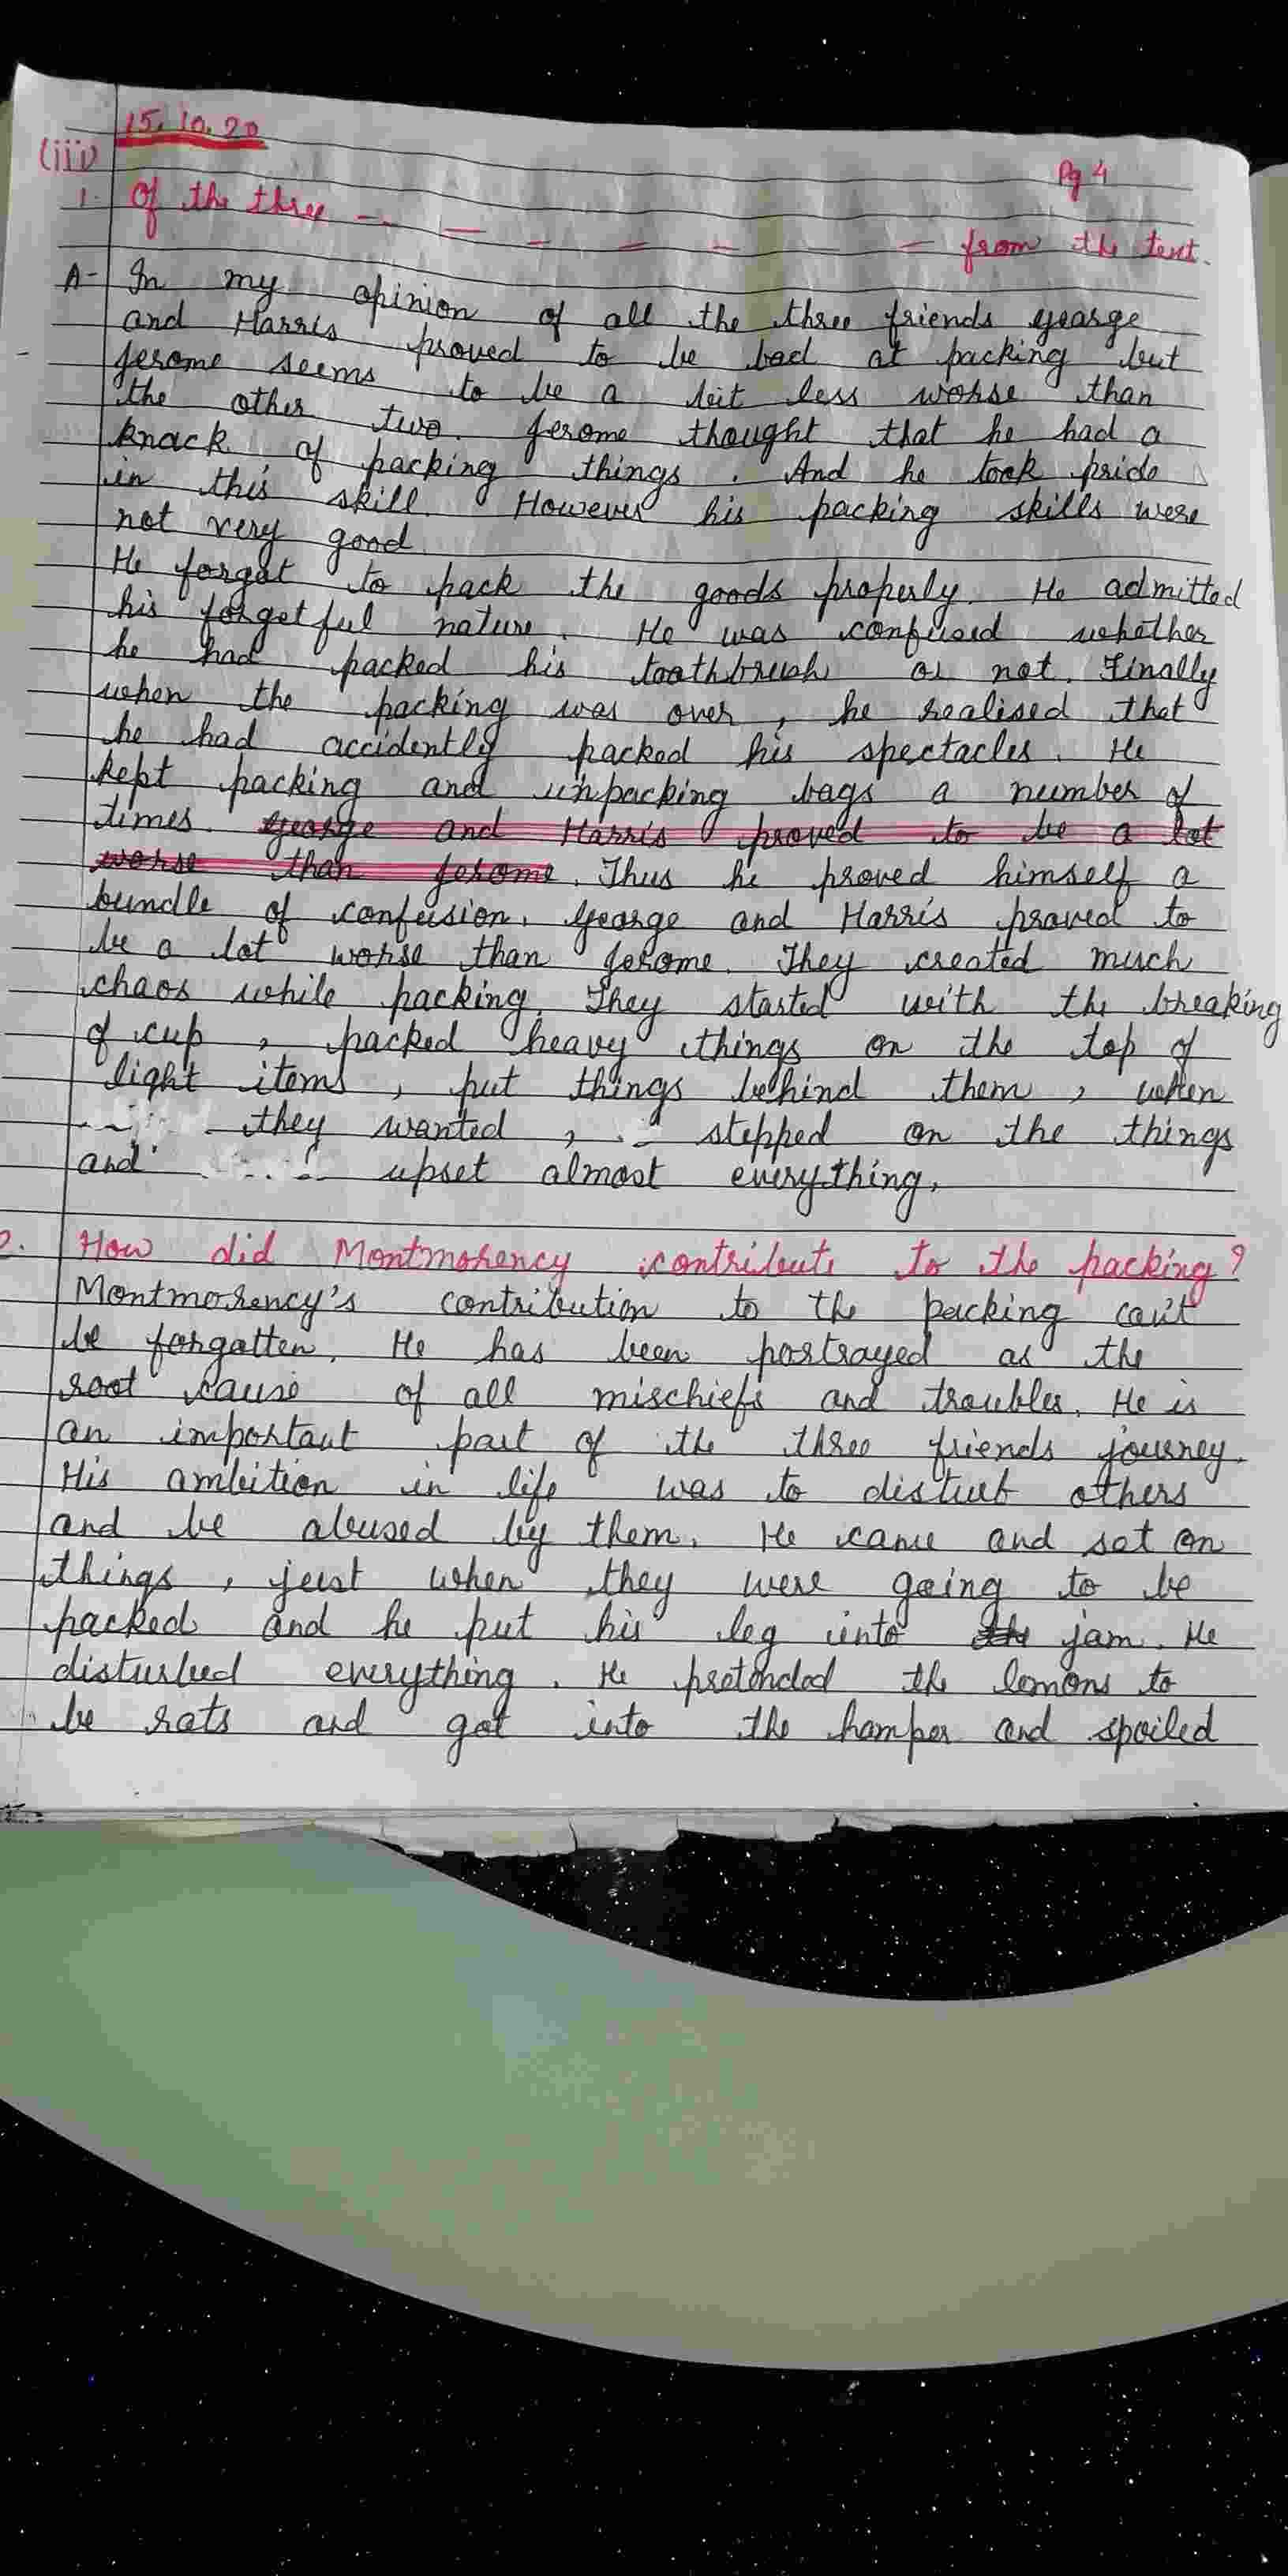 15.10.20
(iii) Pg 4
1. Of the three - - - - - - - from the text.
A- In my opinion of all the three friends George
and Harris proved to be bad at packing but
Jerome seems to be a bit less worse than
the other two. Jerome thought that he had a
knack of packing things. And he took pride
in this skill. However his packing skills were
not very good.
He forgot to pack the goods properly. He admitted
his forgetful nature. He was confused whether
he had packed his toothbrush or not. Finally
when the packing was over, he realised that
he had accidently packed his spectacles. He
kept packing and unpacking bags a number of
times. George and Harris proved to be a lot
worse than Jerome. Thus he proved himself a
bundle of confusion. George and Harris proved to
be a lot worse than Jerome. They created much
chaos while packing. They started with the breaking
of cup, packed heavy things on the top of
light items, put things behind them, when
they wanted, stepped on the things
and upset almost everything.
2. How did Montmorency contribute to the packing?
Montmorency's contribution to the packing can't
be forgotten. He has been portrayed as the
root cause of all mischiefs and troubles. He is
an important part of the three friends journey.
His ambition in life was to disturb others
and be abused by them. He came and sat on
things, just when they were going to be
packed and he put his leg into the jam. He
disturbed everything. He pretended the lemons to
be rats and got into the hamper and spoiled